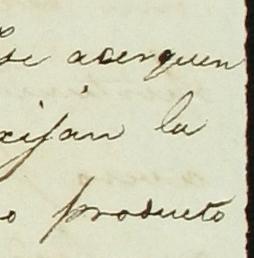 se acerquen
xijan la
o producto